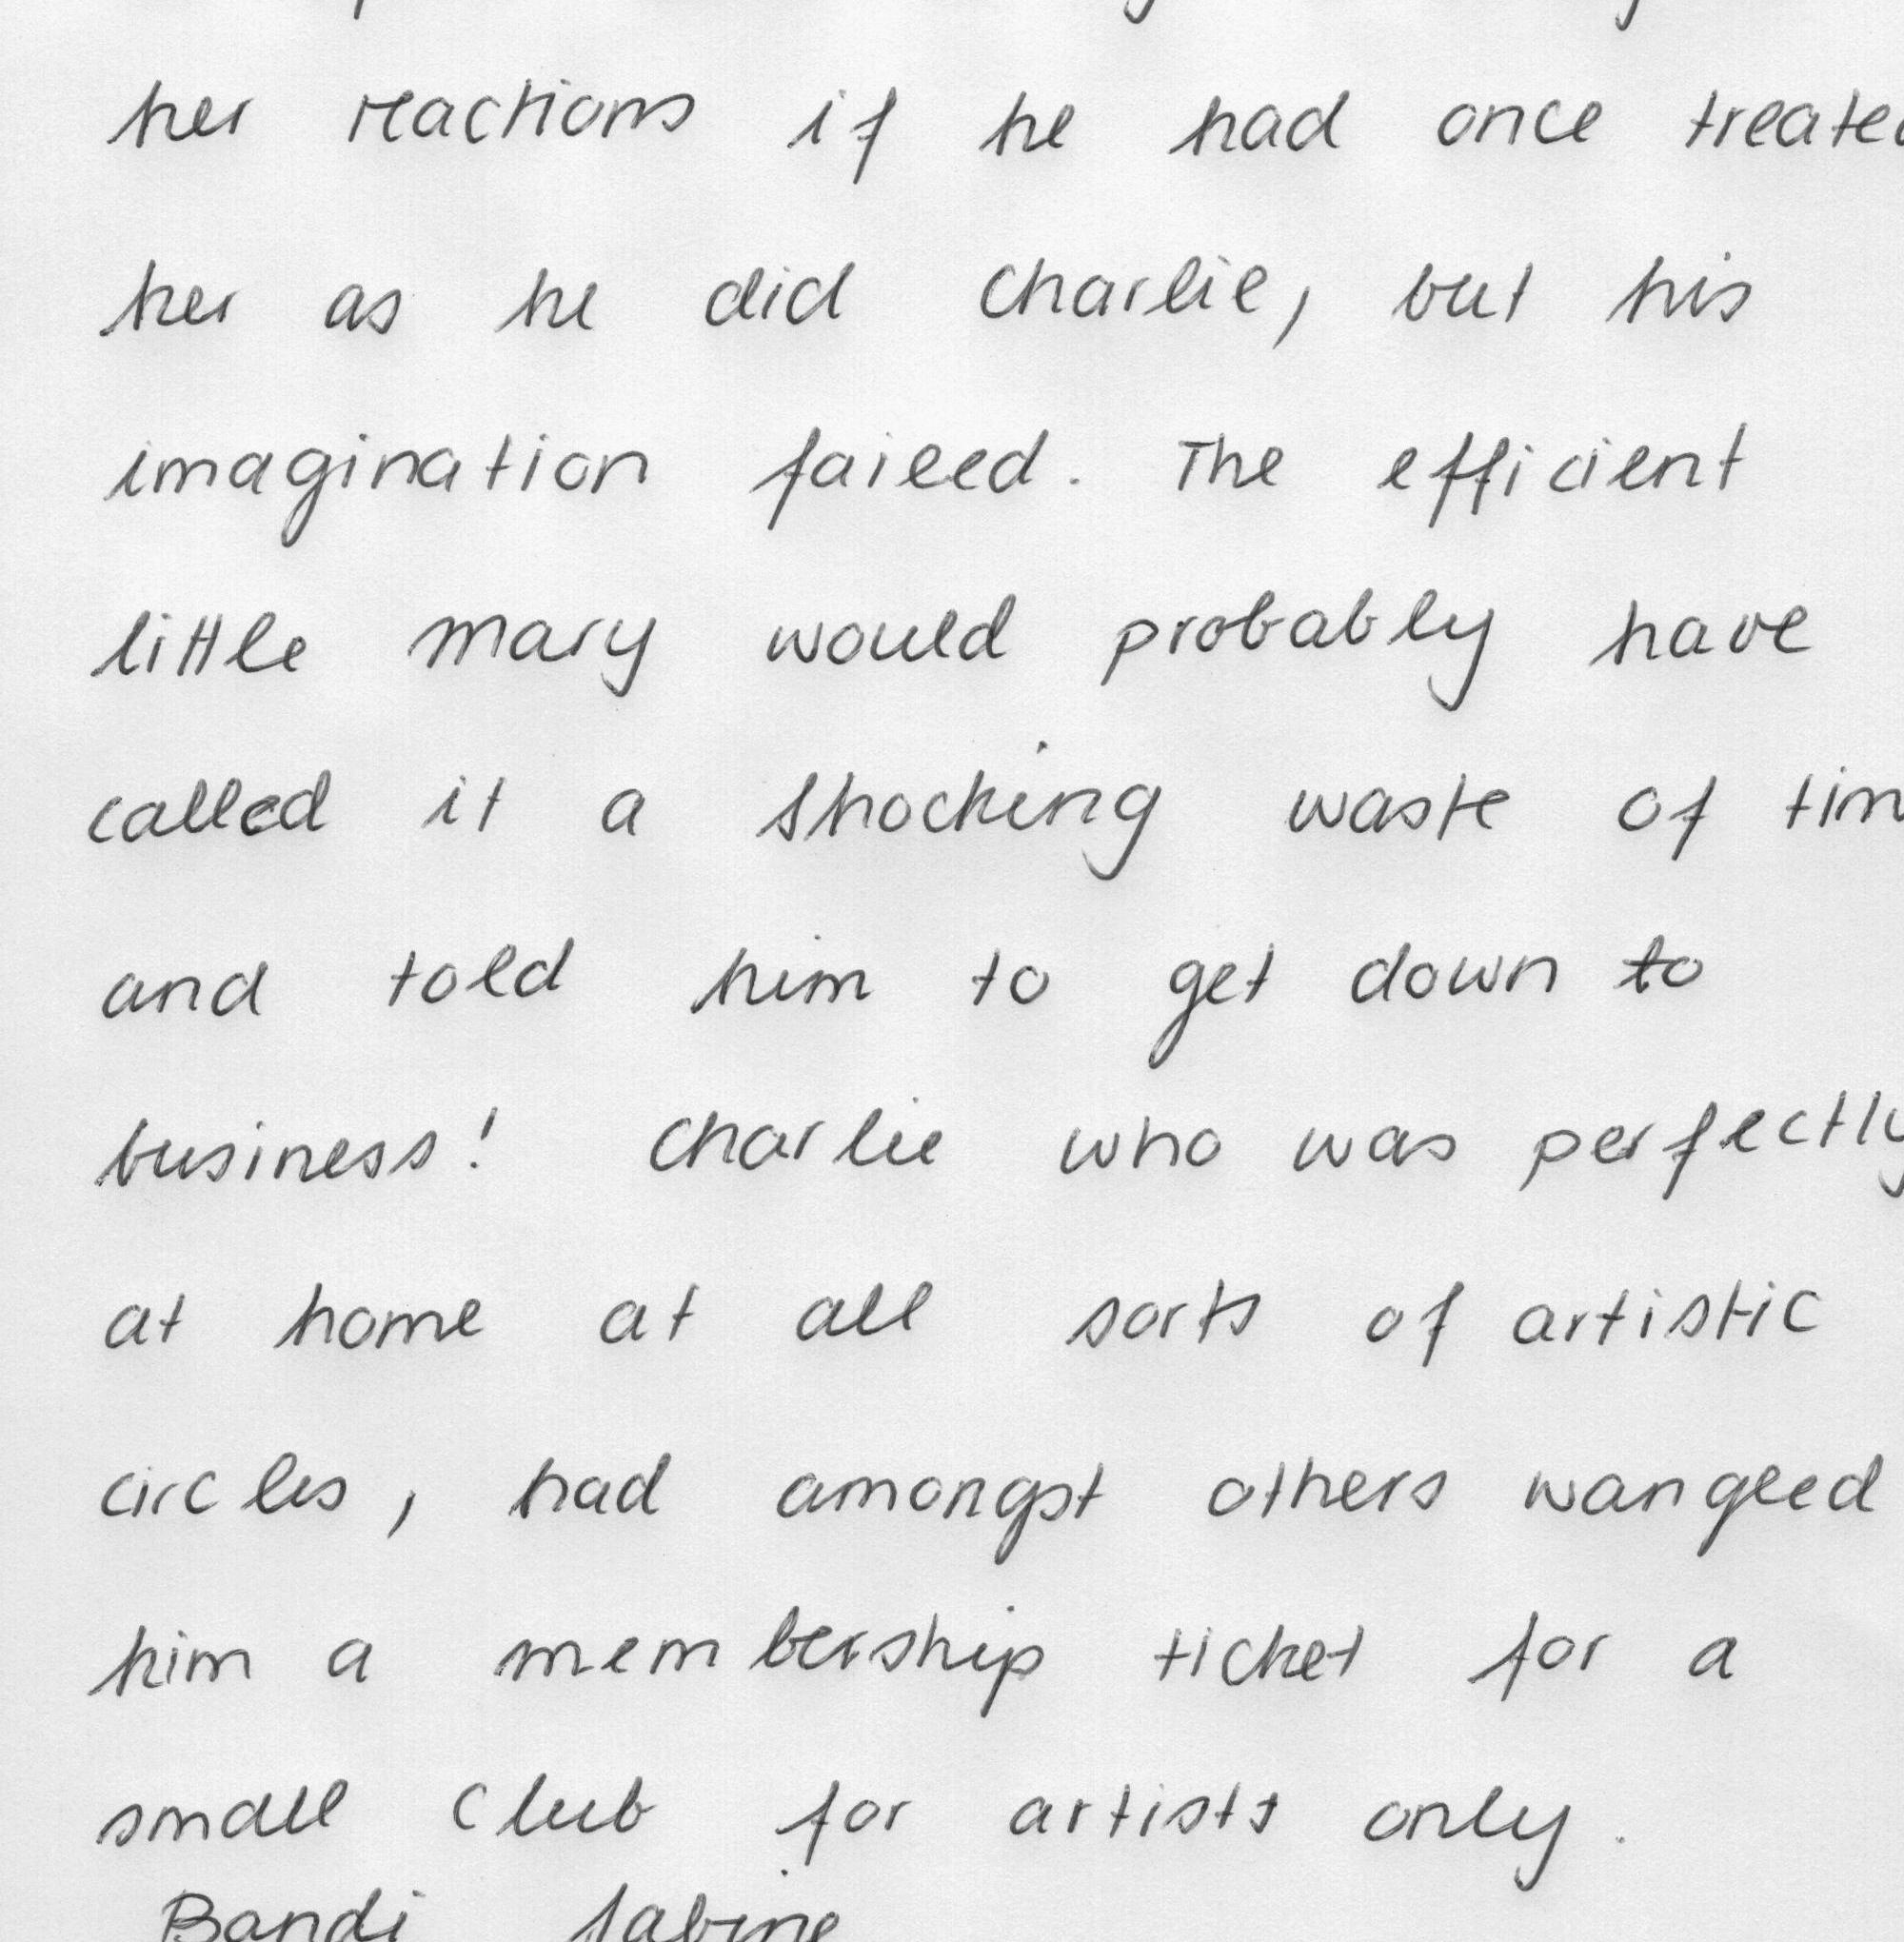 her reactions if he had once treated
her as he did Charlie, but his
imagination failed. The efficient
little Mary would probably have
called it a shocking waste of tim
and told him to get down to
business! Charlie who was perfectly
at home at all sorts of artistic
circles, had amongst others wangled
him a membership ticket for a
small club for artists only.
Bandi Sabine